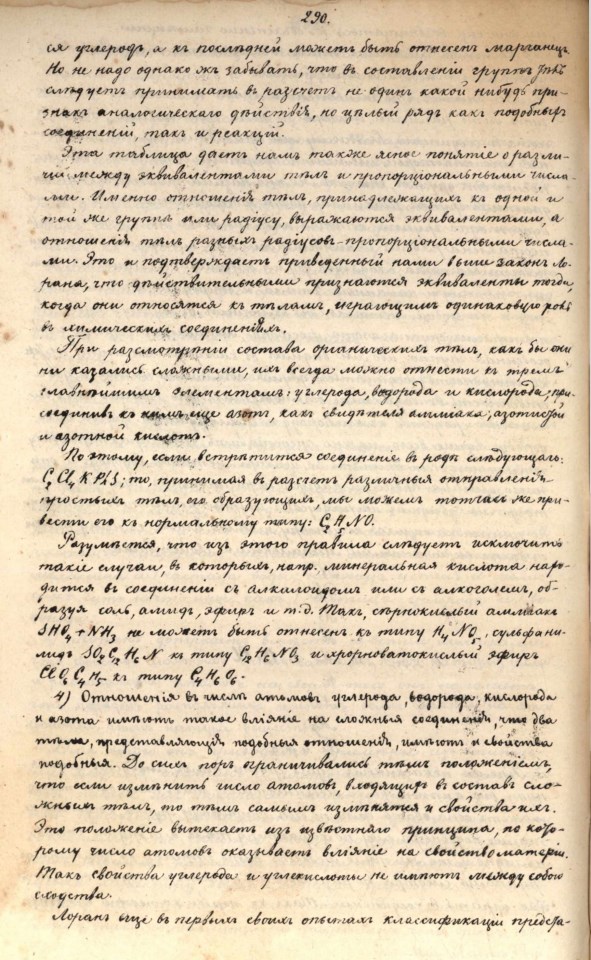 290.
ся углеродъ, а къ послѣдней можетъ быть отнесенъ марганецъ.
Но не надо однако жъ забывать, что въ составленіи группъ
слѣдуетъ принимать въ разсчетъ не одинъ какой нибудь при-
знакъ аналогическаго дѣйствія, но цѣлый рядъ какъ подобныхъ
соединеній, такъ и реакцій.
Эта таблица даетъ намъ также ясное понятіе о разли-
чіи между эквивалентами тѣлъ и пропорціональными числа-
ми. Именно отношенія тѣлъ, принадлежащихъ къ одной и
той же группѣ или радіусу, выражаются эквивалентами, а
отношенія тѣлъ разныхъ радіусовъ - пропорціональными числа-
ми. Это и подтверждаетъ приведенный нами выше законъ Ло-
рана, что дѣйствительными признаются эквиваленты тогда,
когда они относятся къ тѣламъ, играющимъ одинаковую роль
въ химическихъ соединеніяхъ.
При разсмотрѣніи состава органическихъ тѣлъ, какъ бы они
ни казались сложными, ихъ всегда можно отнести къ тремъ
главнѣйшимъ элементамъ: углерода, водорода и кислорода; при-
соединивъ къ нимъ еще азотъ, какъ свидѣтеля амміака, азотистой
и азотной кислотъ.
По этому, если встрѣтится соединеніе въ родѣ слѣдующаго:
то, принимая въ разсчетъ различныя отправленія
простыхъ тѣлъ, его образующихъ, мы можемъ тотчасъ же при-
вести его къ нормальному типу: C₂H₅NO.
Разумѣется, что изъ этого правила слѣдуетъ исключить
такіе случаи, въ которыхъ, напр. минеральная кислота нахо-
дится въ соединеніи съ алкалоидомъ или съ алкоголемъ, об-
разуя соль, амидъ, эфиръ и т.д. Такъ, сѣрнокислый амміакъ
SHO₄+NH₃ не можетъ быть отнесенъ къ типу H₄NO₅, сульфани-
лидъ SO₂C₁₂H₆N къ типу C₁₂H₆NO₃ и хлорноватокислый эфиръ
ClO₆C₄H₅ къ типу C₄H₆O₆.
4) Отношенія въ числѣ атомовъ углерода, водорода, кислорода
и азота имѣютъ такое вліяніе на сложныя соединенія, что два
тѣла, представляющія подобныя отношенія, имѣютъ и свойства
подобныя. До сихъ поръ ограничивались тѣмъ положеніемъ,
что если измѣнить число атомовъ, входящихъ въ составъ сло-
жныхъ тѣлъ, то тѣмъ самымъ измѣнятся и свойства ихъ.
Это положеніе вытекаетъ изъ извѣстнаго принципа, по кото-
рому число атомовъ оказываетъ вліяніе на свойство матеріи.
Такъ свойства углерода и углекислоты не имѣютъ между собою
сходства.
Лоранъ еще въ первыхъ своихъ опытахъ классификаціи предста-